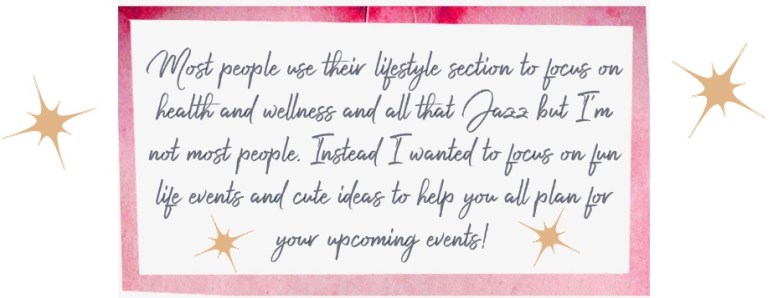 Most people use their lifestyle section to focus on
health and wellness and all that Jazz but I'm
not most people. Instead I wanted to focus on fun
life events and cute ideas to help you all plan for
your upcoming events!